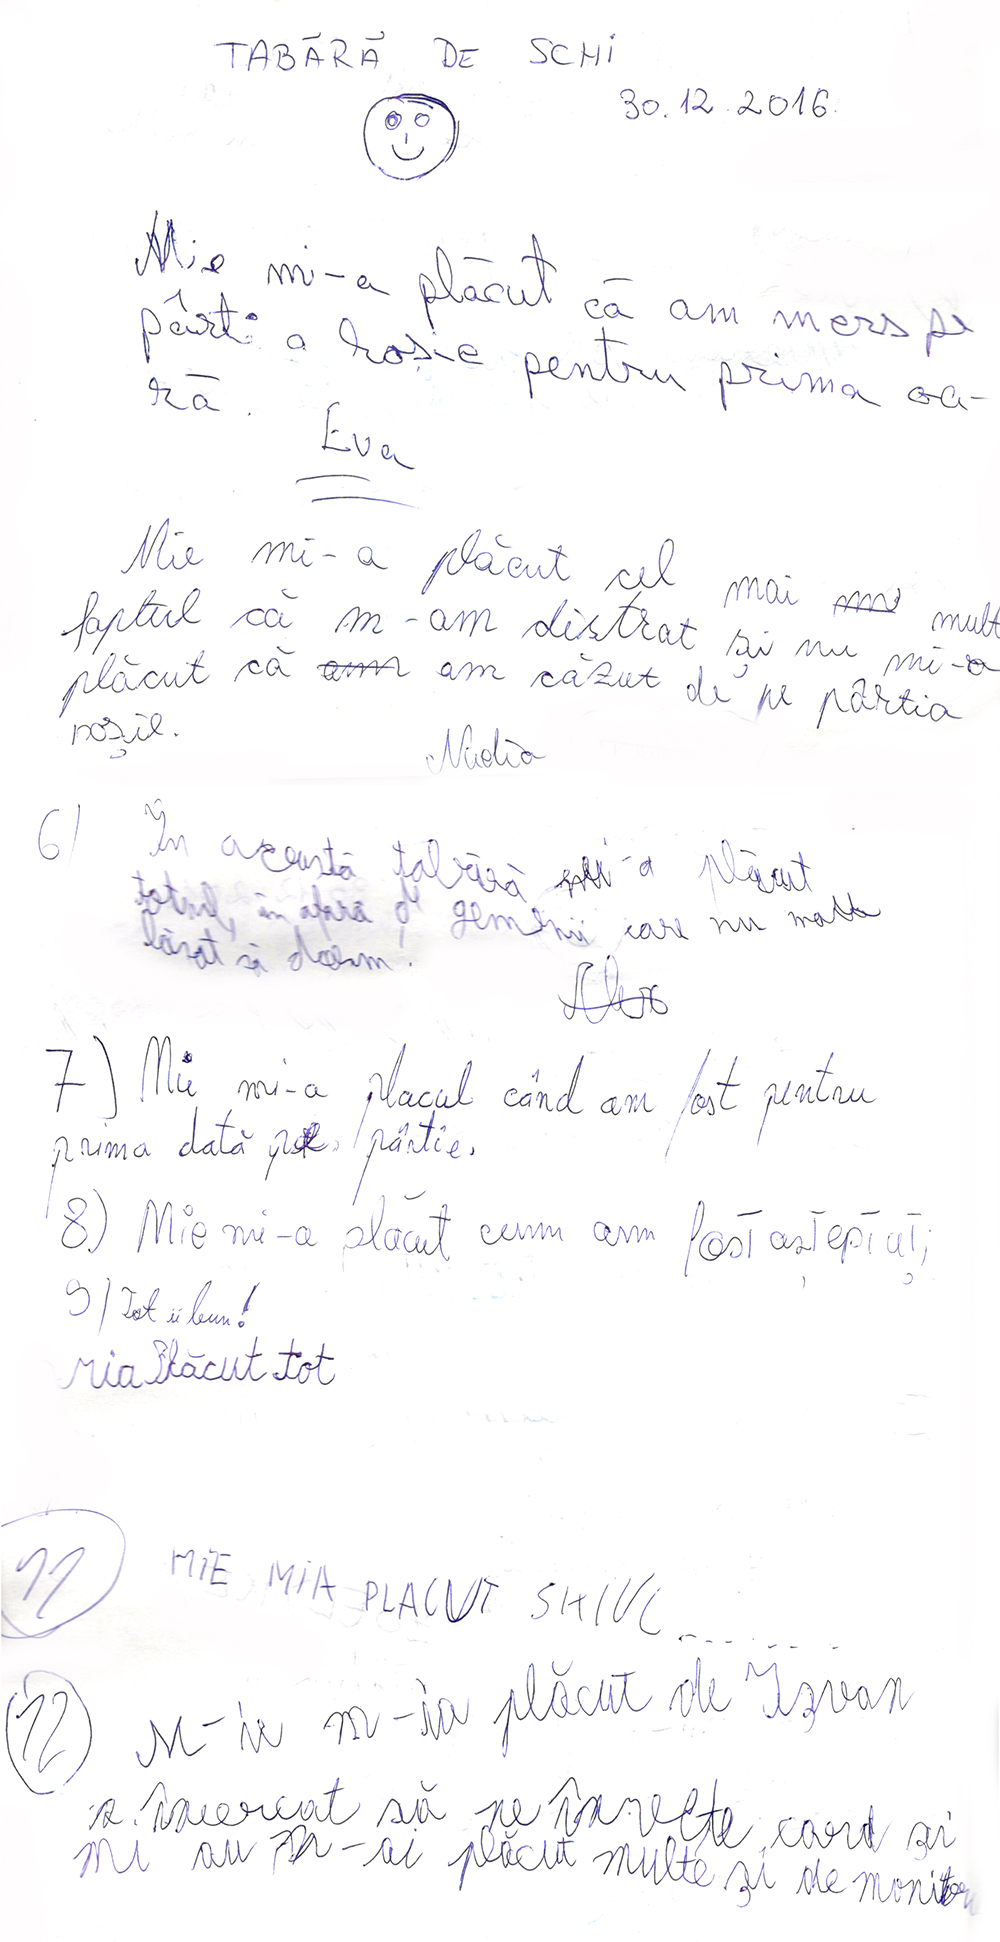 TABĂRĂ DE SCHI
30.12.2016.
Mie mi-a plăcut că am mers pe
pârti a roșie pentru prima oa-
ră.
Eva
Mie mi-a plăcut cel mai mult
faptul că m-am distrat și nu mi-a
plăcut că am căzut de pe pârtia
roșie.
Nadia
6/ În această tabără mi-a plăcut
totul, în afară de gemenii care nu
lăsat să dorm.
Alex
7) Mie mi-a placut când am fost pentru
prima dată pe pârtie.
8) Mie mi-a plăcut cum am fost așteptați;
9/ Tot ii bun!
mia Plăcut tot
11 MIE MIA PLACUT SHIUL
12 M-ie m-ia plăcut de Izvan
a încercat să ne învețe card și
mi au m-ai plăcut multe și de monitor